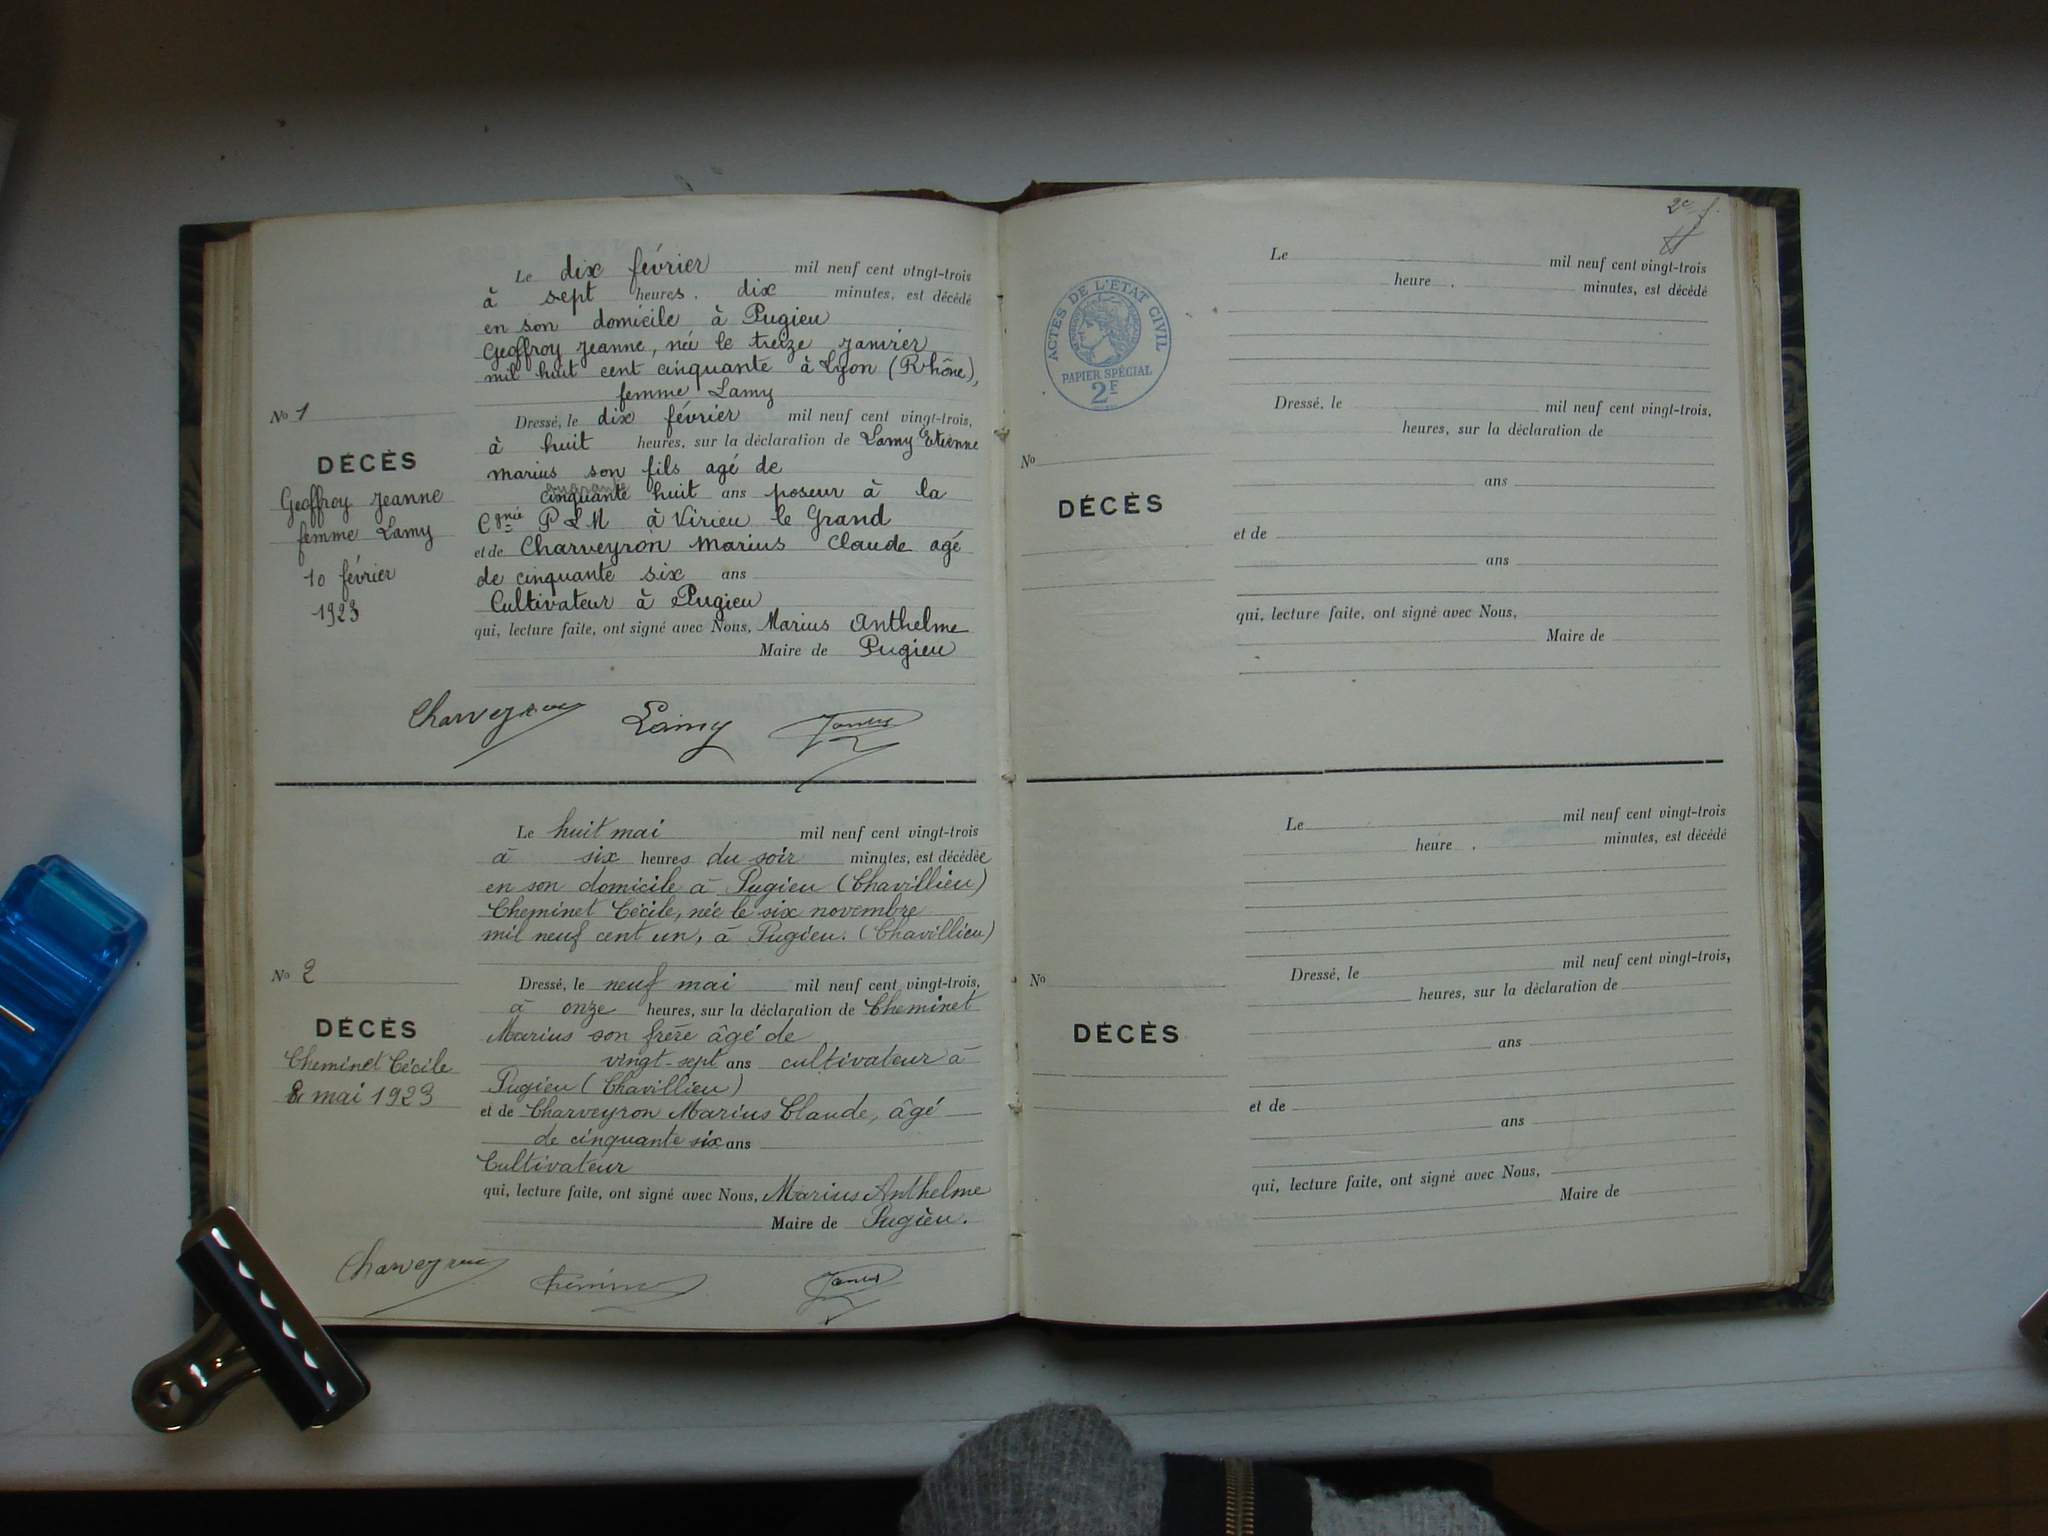 Le dix février mil neuf cent vingt-trois
à sept heures. dix minutes, est décédé
en son domicile à Pugieu
Geoffroy Jeanne, née le treize janvier
mil huit cent cinquante à Lyon (Rhône),
femme Lamy
No 1
Dressé, le dix février mil neuf cent vingt-trois,
à huit heures, sur la déclaration de Lamy Etienne
DÉCÈS
Marius son fils agé de
Geoffroy Jeanne
quarante
cinquante huit ans poseur à la
femme Lamy
Cgnie P L M à Virieu le Grand
et de Charveyron Marius Claude agé
10 février
de cinquante six ans
1923
Cultivateur à Pugieu
qui, lecture faite, ont signé avec Nous, Marius Anthelme
Maire de Pugieu
Charveyron Lamy
Le huit mai mil neuf cent vingt-trois
à six heures du soir minutes, est décédée
en son domicile à Pugieu (Chavillieu)
Cheminet Cécile, née le six novembre
mil neuf cent un, à Pugieu. (Chavillieu)
No 2
Dressé, le neuf mai mil neuf cent vingt-trois,
à onze heures, sur la déclaration de Cheminet
DÉCÈS
Marius son frère âgé de
Cheminet Cécile
vingt-sept ans cultivateur à
8 mai 1923
Pugieu (Chavillieu)
et de Charveyron Marius Claude, âgé
de cinquante six ans
Cultivateur
qui, lecture faite, ont signé avec Nous, Marius Anthelme
Maire de Pugieu.
Charveyron
2e f.
Le mil neuf cent vingt-trois
heure . minutes, est décédé
ACTES DE L'ETAT CIVIL
PAPIER SPÉCIAL
2F
Dressé, le mil neuf cent vingt-trois,
heures, sur la déclaration de
No
ans
DÉCÈS
et de
ans
qui, lecture faite, ont signé avec Nous,
Maire de
Le mil neuf cent vingt-trois
heure . minutes, est décédé
Dressé, le mil neuf cent vingt-trois,
No
heures, sur la déclaration de
DÉCÈS
ans
et de
ans
qui, lecture faite, ont signé avec Nous,
Maire de